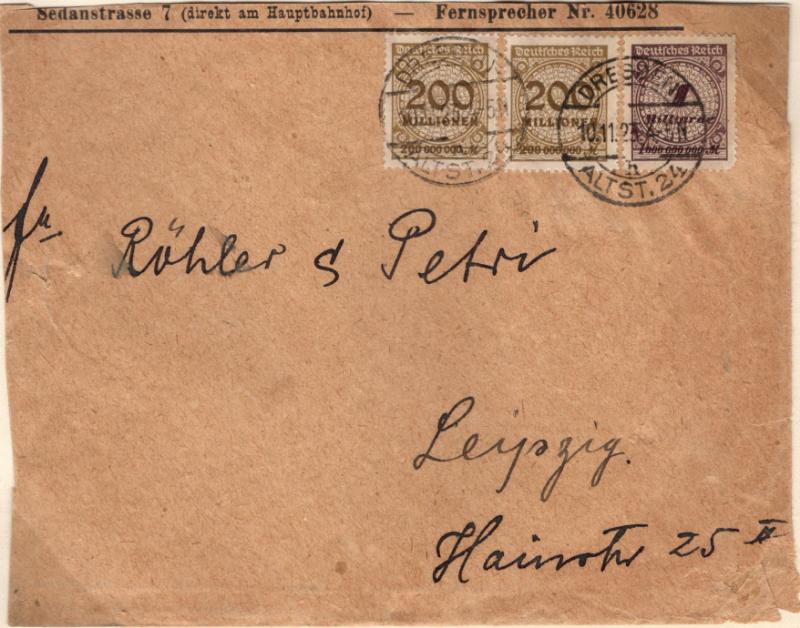 Sedanstrasse 7 (direkt am Hauptbahnhof) — Fernsprecher Nr. 40628
Deutsches Reich Deutsches Reich Deutsches Reich
200 200 1
MILLIONEN MILLIONEN Milliarde
200 000 000 M 200 000 000 M 1000 000 000 M
DRESDEN
ALTST. 24
DRESDEN
10.11.23. 4-5N
h
ALTST. 24
Fa Röhler & Petri
Leipzig.
Hainstr 25 II